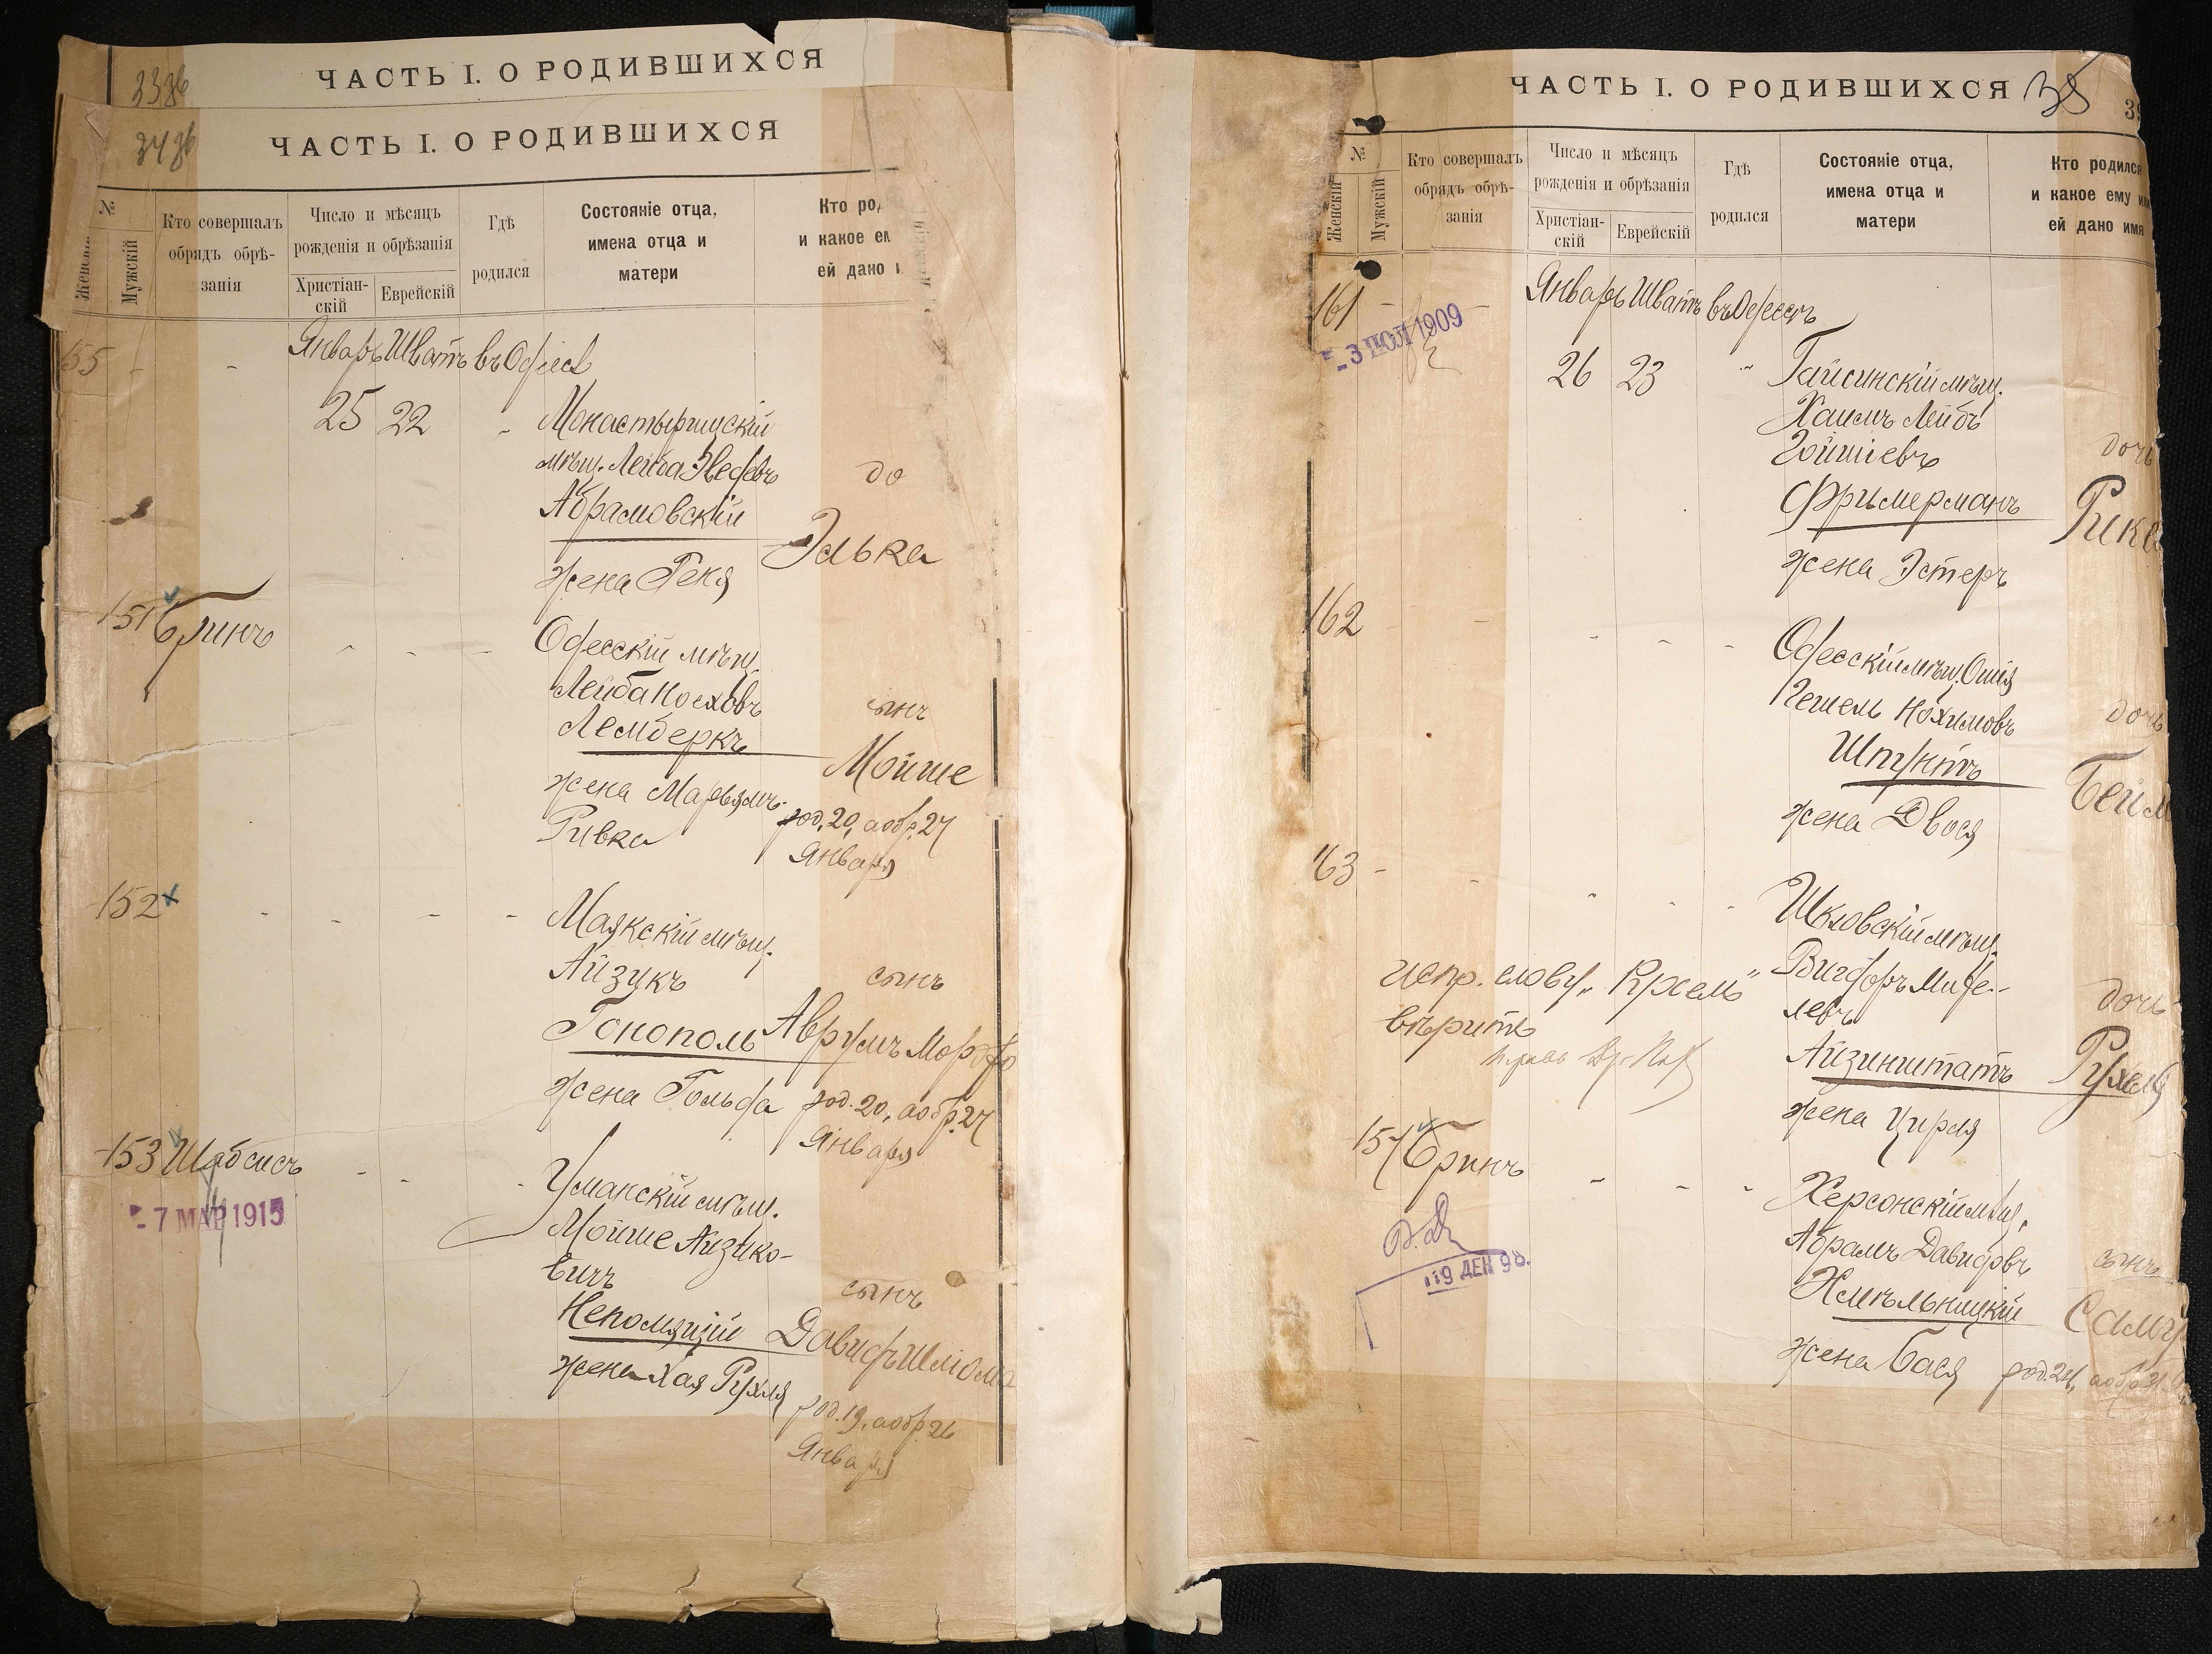 23 об
ЧАСТЬ I. О РОДИВШИХСЯ
34 об
ЧАСТЬ I. О РОДИВШИХСЯ
№
Женскій
Мужскій
Кто совершалъ
обрядъ обрѣ-
занія
Число и мѣсяцъ
рожденія и обрѣзанія
Христіан-
скій
Еврейскій
Гдѣ
родился
Состояніе отца,
имена отца и
матери
Кто род
и какое ем
ей дано и
155 - - Январь Шватъ въ Одессѣ
25 22 „ Монастырищскій
мѣщ. Лейба
Абрамовскій
жена Геня
до
Элька
151 Бринъ
Одесскій мѣщ.
Лейба Носховъ
Лемберкъ
жена Марьямъ
Ривка
сынъ
Мойше
род. 20, а обр. 27
Января
152 - - - - Маякскій мѣщ.
Айзукъ
Гонополь
жена Гольда
сынъ
Аврумъ Мордко
род. 20, а обр. 27
Января
153 Шабсисъ - - - Уманскій мѣщ.
Мойше Айзико-
вичъ
Непомящій
жена Хая Рухля
сынъ
Давидъ Шлiома
род. 19, а обр. 26
Января
- 7 МАР 1915
ЧАСТЬ I. О РОДИВШИХСЯ
35
39
№
Женскій
Мужскій
Кто совершалъ
обрядъ обрѣ-
занія
Число и мѣсяцъ
рожденія и обрѣзанія
Христіан-
скій
Еврейскій
Гдѣ
родился
Состояніе отца,
имена отца и
матери
Кто родился
и какое ему или
ей дано имя
161 - - Январь Шватъ въ Одессѣ
- 3 ІЮЛ 1909
26 23 „ Гайсинскій мѣщ.
Хаимъ Лейбъ
Фримерманъ
жена Эстеръ
дочь
162 - - - - Одесскій мѣщ. Ошія
Гешель Нохимовъ
Штунтъ
жена Двося
дочь
163 - - - - - Шкловскій мѣщ.
Вигдоръ Миде-
левъ
Айзинштатъ
жена Цирля
дочь
Рухель
испр. слову „Рухель"
вѣрить
154 Бринъ - - - Херсонскій мѣщ.
Абрамъ Давидовъ
Хмѣльницкій
жена Бася
сынъ
Саму
род. 24, а обр. 31
19 ДЕК 98.